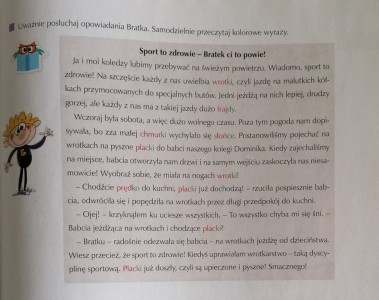 Uważnie posłuchaj opowiadania Bratka. Samodzielnie przeczytaj kolorowe wyrazy.
Sport to zdrowie – Bratek ci to powie!
Ja i moi koledzy lubimy przebywać na świeżym powietrzu. Wiadomo, sport to
zdrowie! Na szczęście każdy z nas uwielbia wrotki, czyli jazdę na malutkich kół-
kach przymocowanych do specjalnych butów. Jedni jeżdżą na nich lepiej, drudzy
gorzej, ale każdy z nas ma z takiej jazdy dużo frajdy.
Wczoraj była sobota, a więc dużo wolnego czasu. Poza tym pogoda nam dopi-
sywała, bo zza małej chmurki wychylało się słońce. Postanowiliśmy pojechać na
wrotkach na pyszne placki do babci naszego kolegi Dominika. Kiedy zajechaliśmy
na miejsce, babcia otworzyła nam drzwi i na samym wejściu zaskoczyła nas niesa-
mowicie! Wyobraź sobie, że miała na nogach wrotki!
– Chodźcie prędko do kuchni, placki już dochodzą! – rzuciła pospiesznie bab-
cia, odwróciła się i popędziła na wrotkach przez długi przedpokój do kuchni.
– Ojej! – krzyknąłem ku uciesze wszystkich. – To wszystko chyba mi się śni. –
Babcia jeżdżąca na wrotkach i chodzące placki?
– Bratku – radośnie odezwała się babcia – na wrotkach jeżdżę od dzieciństwa.
Wiesz przecież, że sport to zdrowie! Kiedyś uprawiałam wrotkarstwo – taką dyscy-
plinę sportową. Placki już doszły, czyli są upieczone i pyszne! Smacznego!